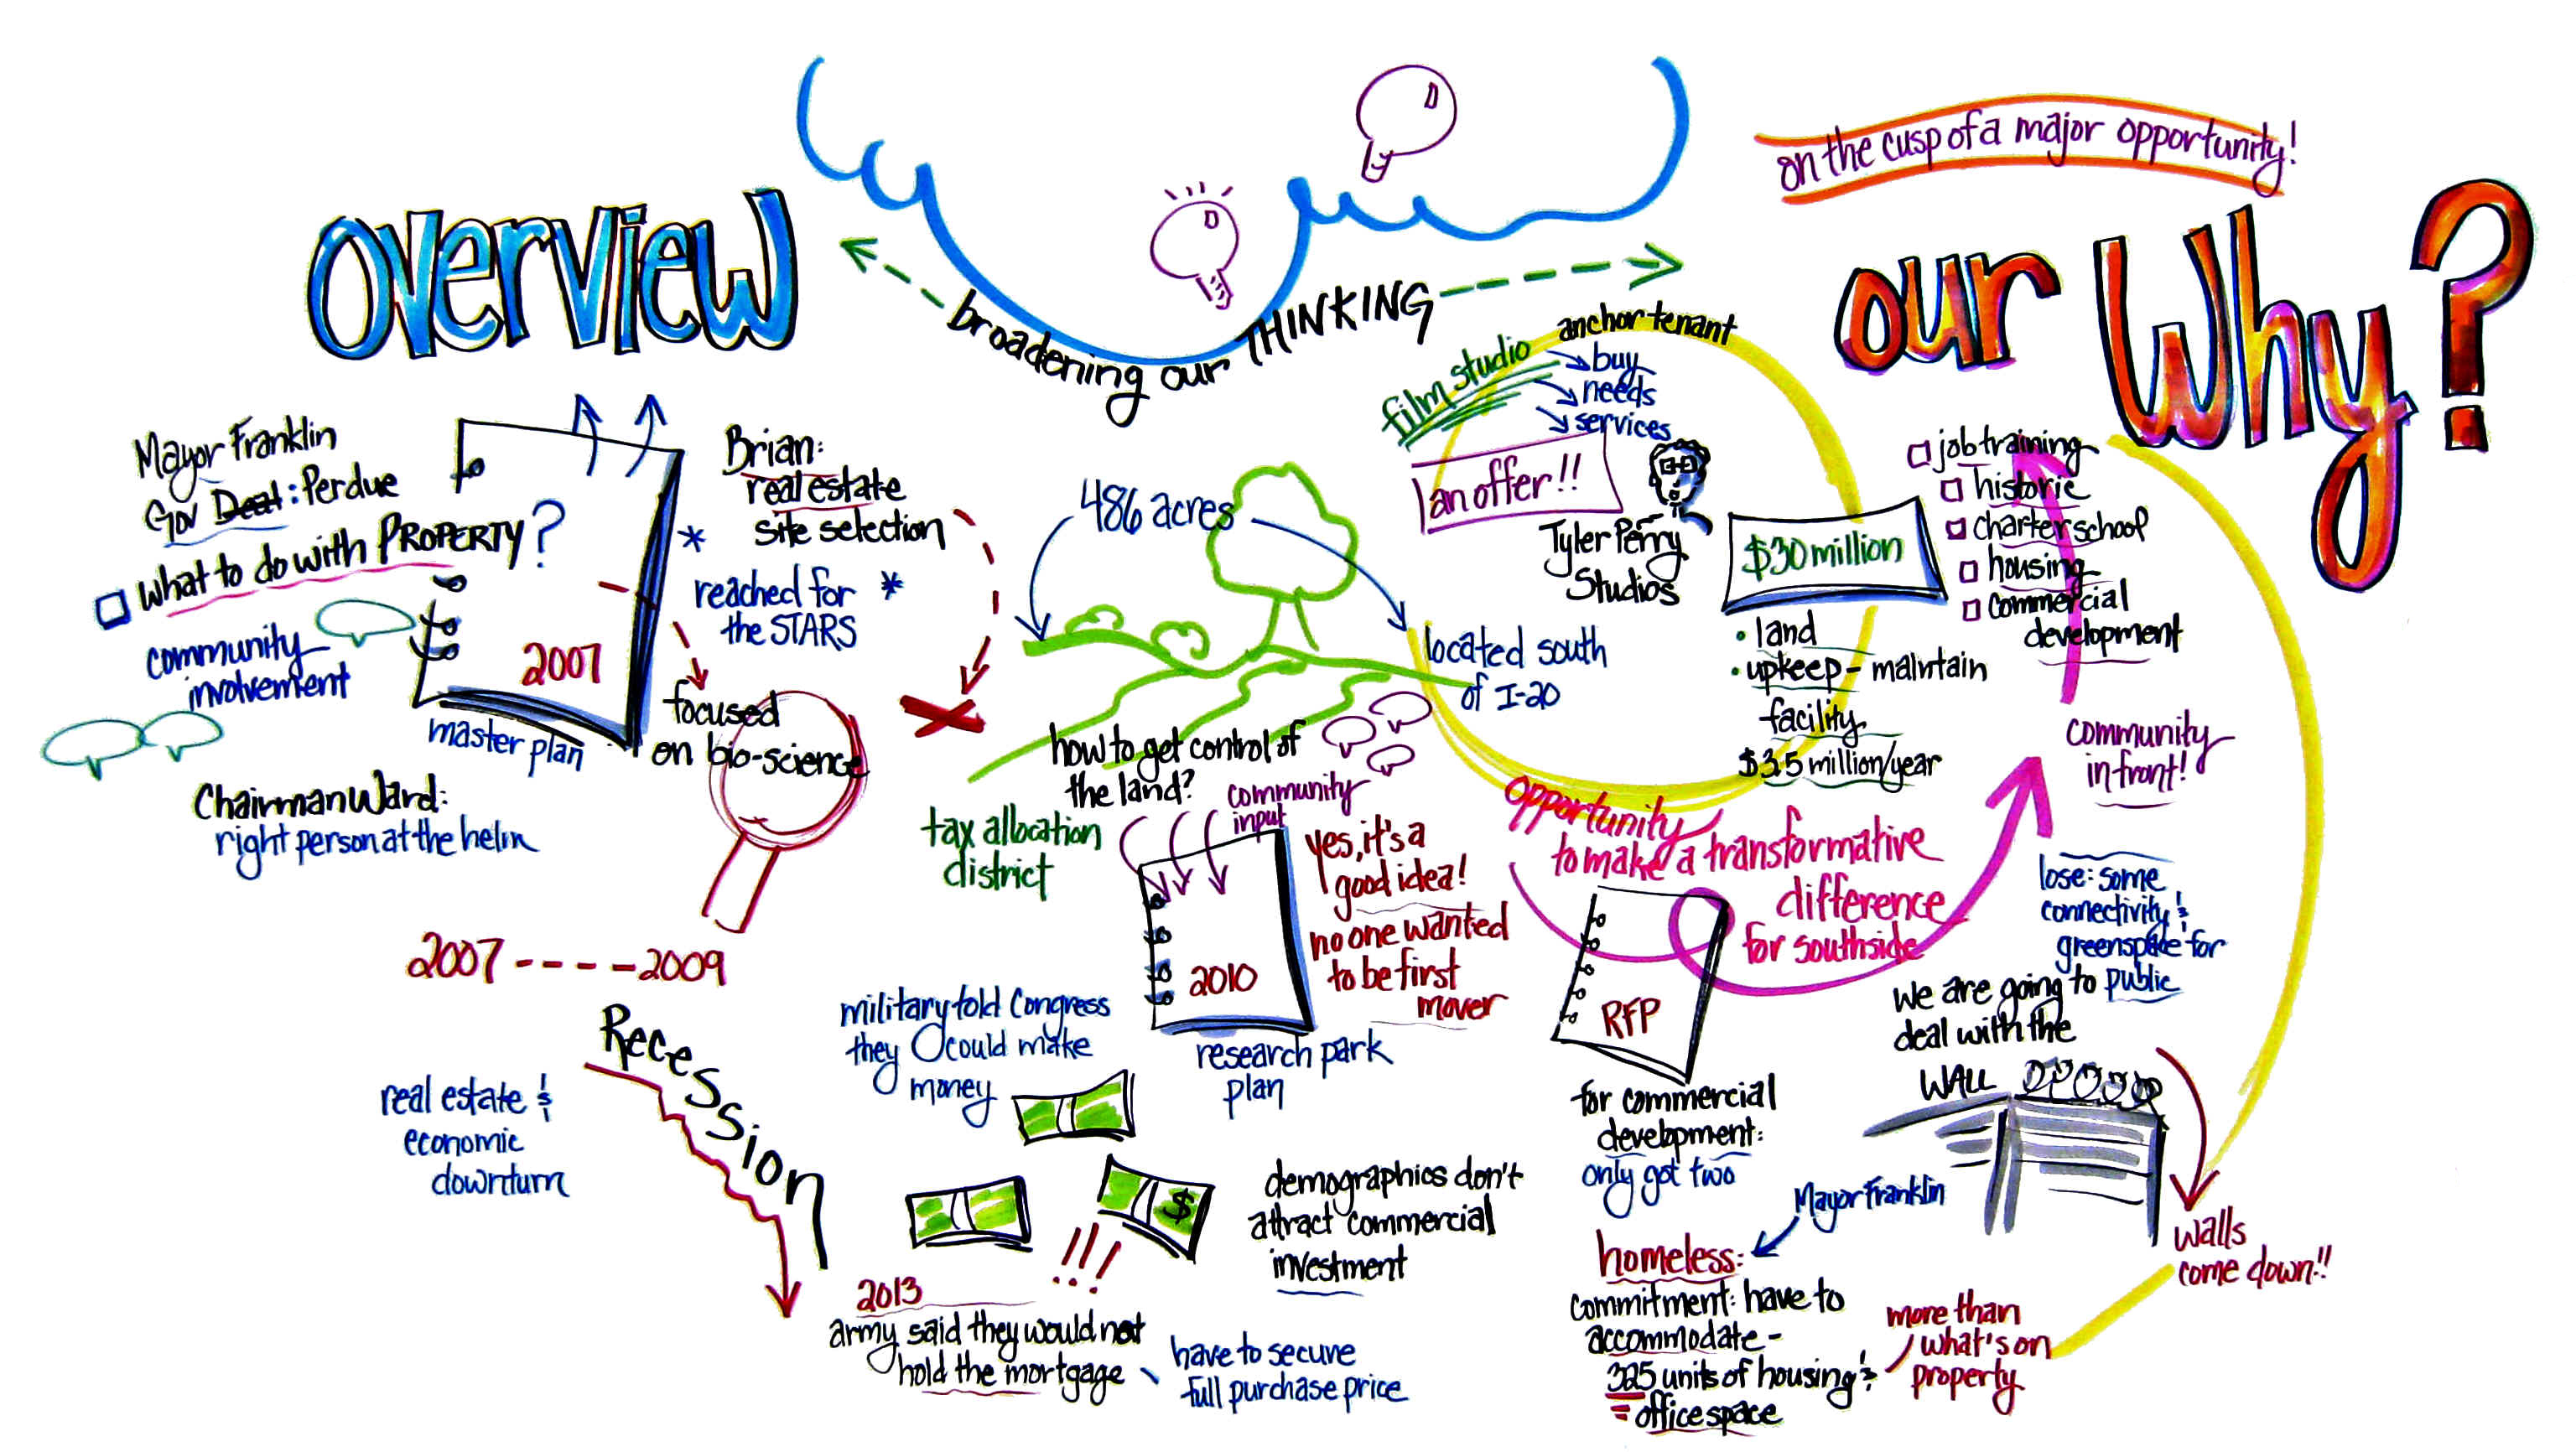 overview
broadening our THINKING
on the cusp of a major opportunity!
our Why?
Mayor Franklin
Gov Deal: Perdue
What to do with PROPERTY?
community
involvement
2007
master plan
Chairman Ward:
right person at the helm
Brian:
real estate
site selection
* reached for *
the STARS
focused
on bio-science
2007 ---- 2009
Recession
real estate &
economic
downturn
486 acres
located south
of I-20
how to get control of
the land?
tax allocation
district
community
input
2010
research park
plan
yes, it's a
good idea!
no one wanted
to be first
mover
military told Congress
they could make
money
$
!!!
demographics don't
attract commercial
investment
2013
army said they would not
hold the mortgage
have to secure
full purchase price
film studio
anchor tenant
buy
needs
services
an offer!!
Tyler Perry
Studios
$30 million
• land
• upkeep - maintain
facility
$3.5 million/year
opportunity
to make a transformative
difference
for southside
RFP
for commercial
development:
only got two
Mayor Franklin
homeless:
commitment: have to
accommodate -
325 units of housing &
= office space
more than
what's on
property
job training
historic
charter school
housing
commercial
development
community
in front!
lose: some
connectivity &
greenspace for
public
we are going to
deal with the
WALL
walls
come down!!